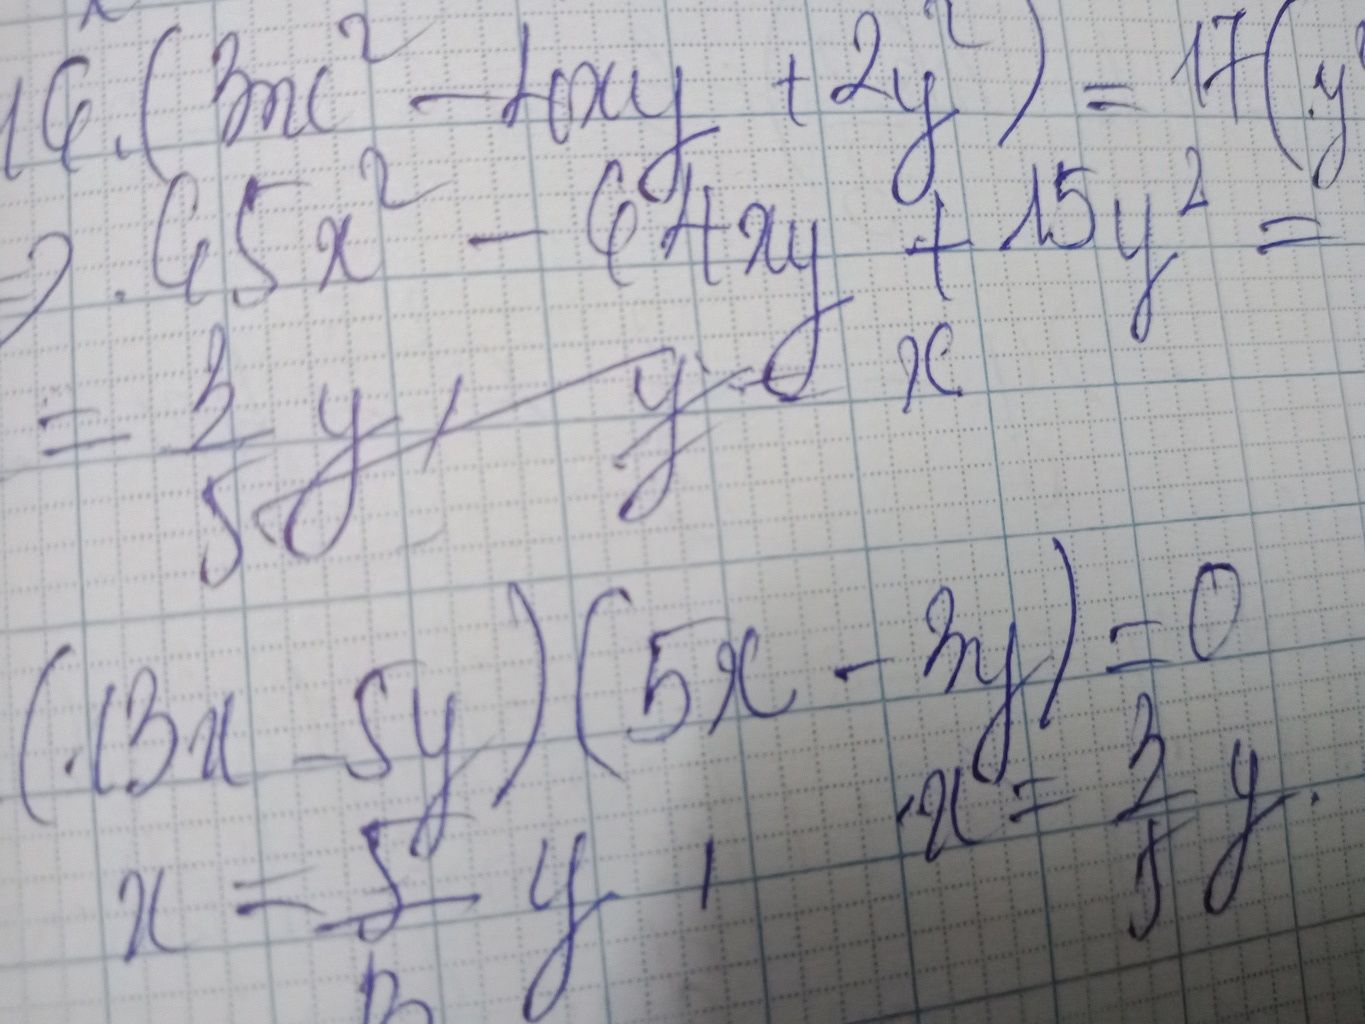 16.(3x² - 4xy + 2y²) = 17(y²
=> .65x² - 64xy + 15y² =
= 3/5 y, y = x
(.13x - 5y)(5x - 3y) = 0
x = 5/13 y, x = 3/5 y.